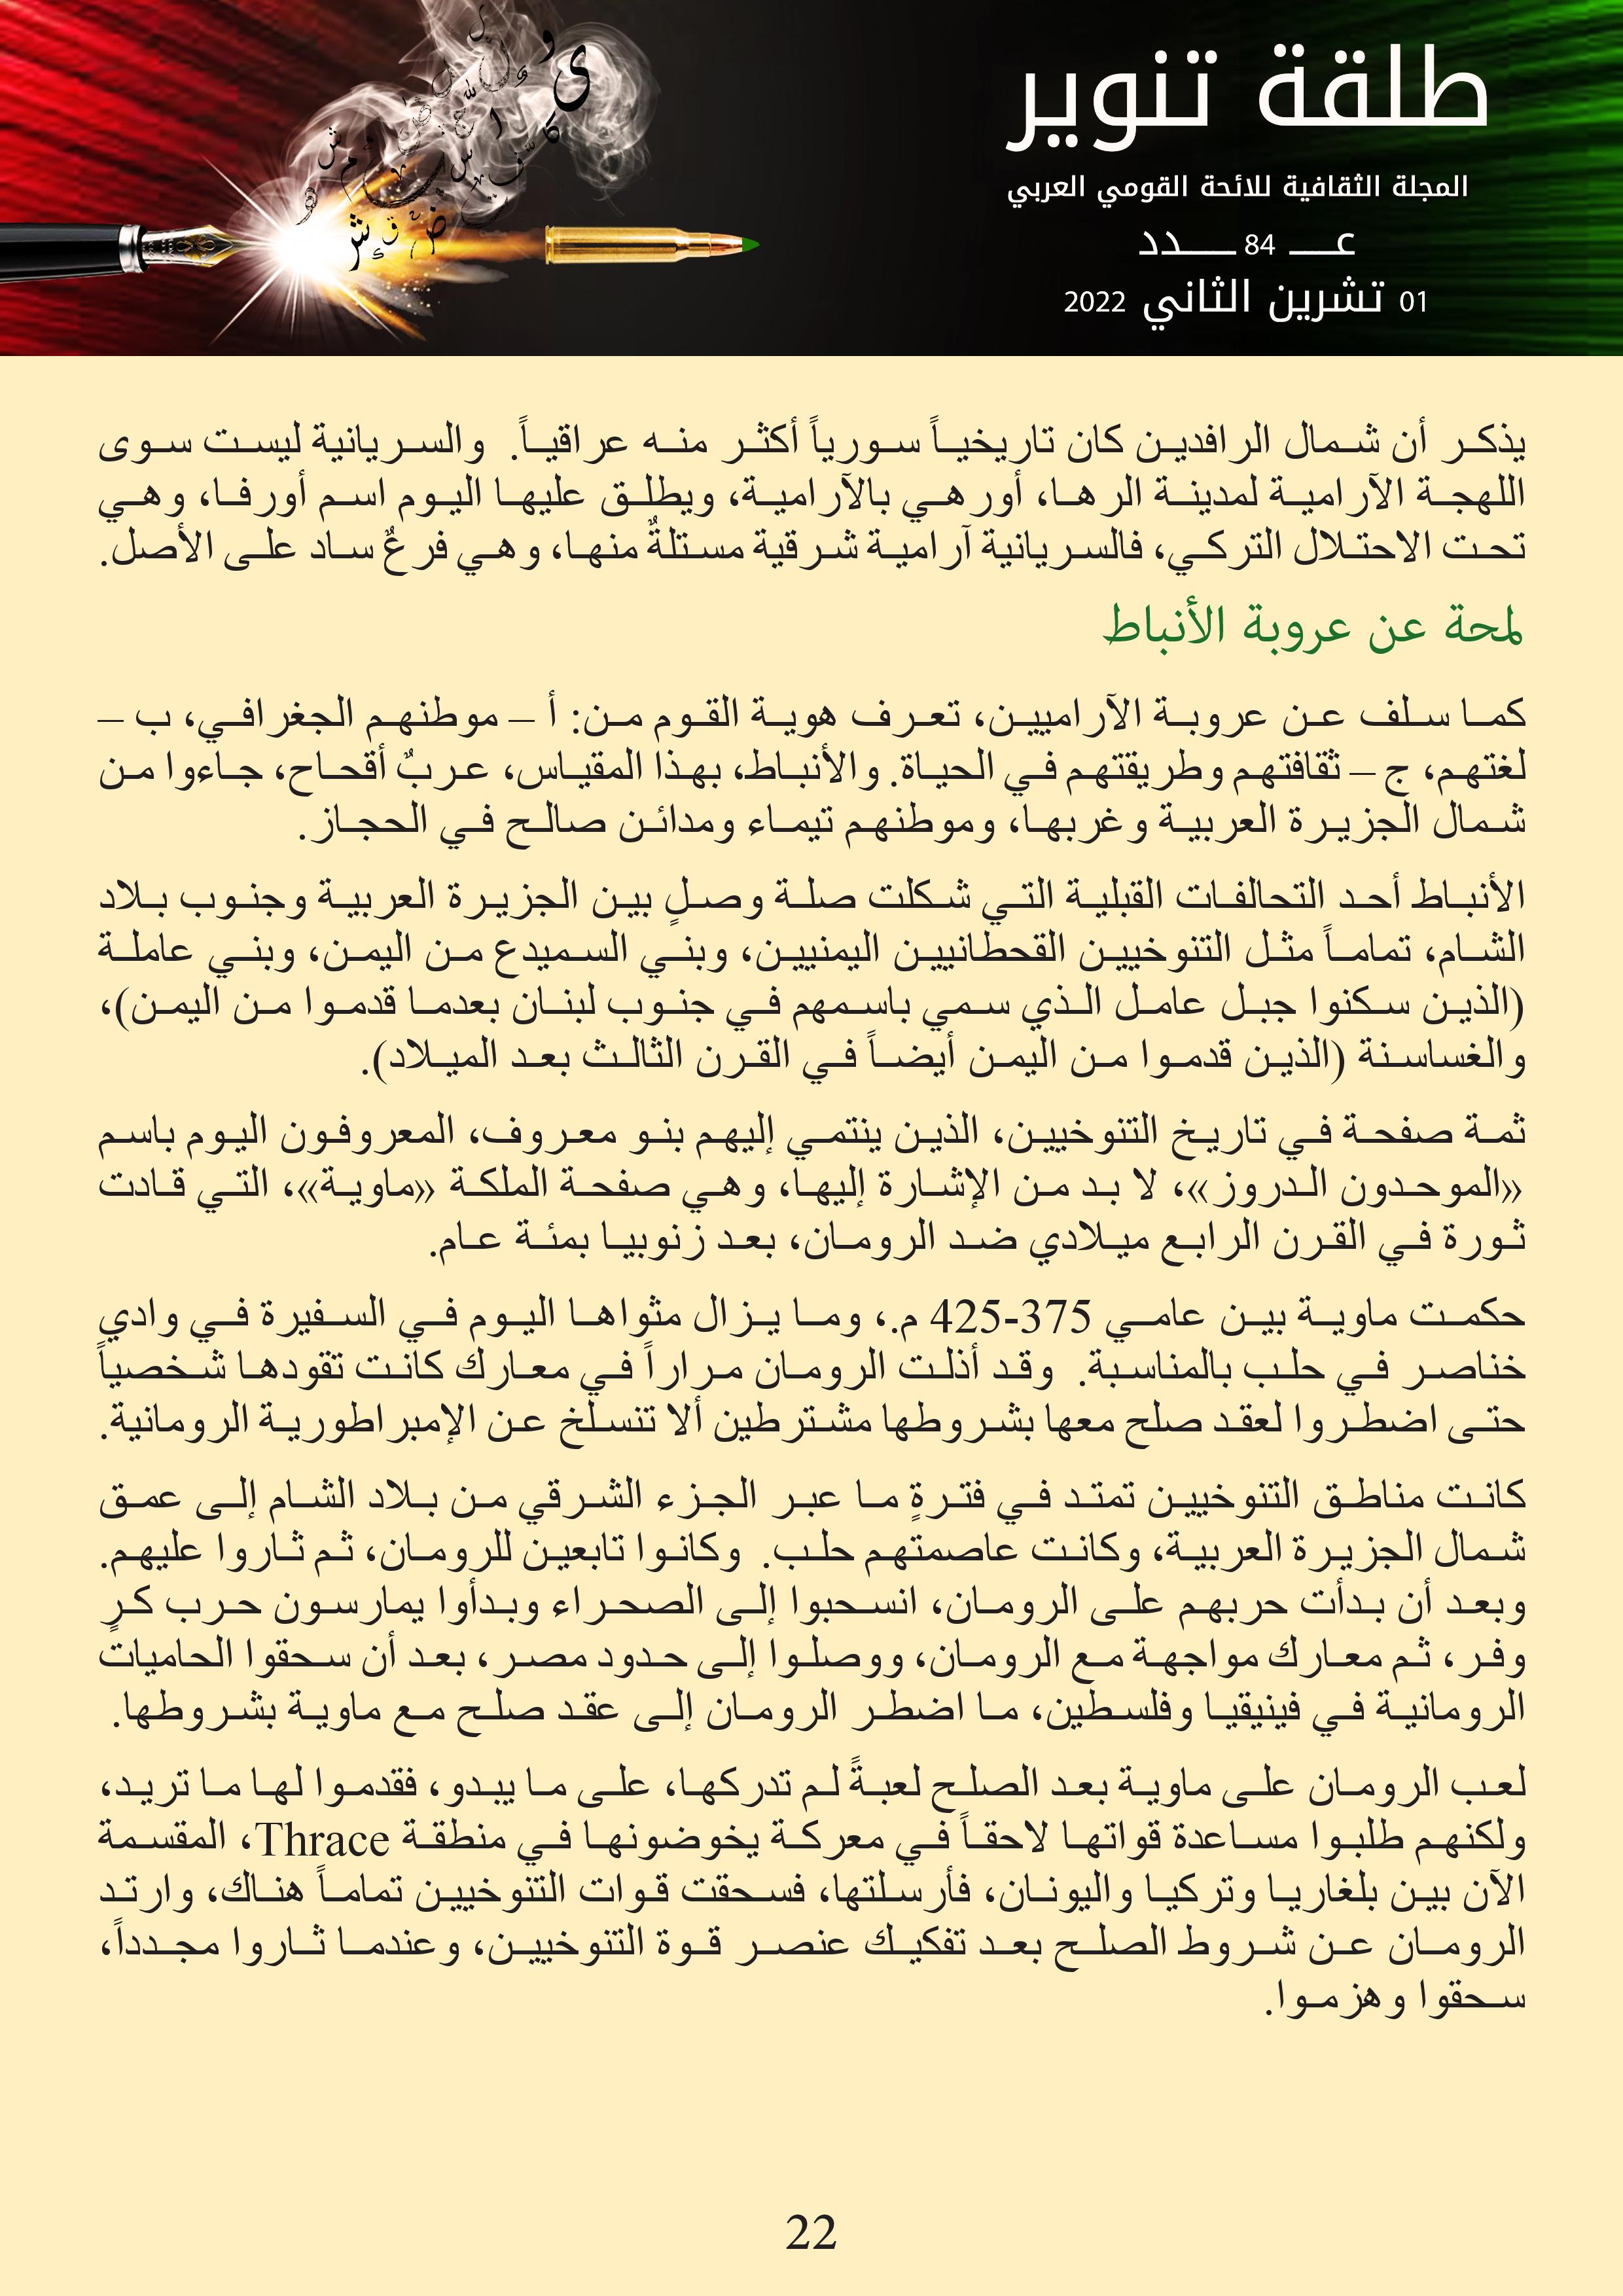 طلقة تنوير
المجلة الثقافية للائحة القومي العربي
عـــ 84 ـــــدد
01 تشرين الثاني 2022
يذكر أن شمال الرافدين كان تاريخياً سورياً أكثر منه عراقياً. والسريانية ليست سوى
اللهجة الآرامية لمدينة الرها، أورهي بالآرامية، ويطلق عليها اليوم اسم أورفا، وهي
تحت الاحتلال التركي، فالسريانية آرامية شرقية مستلةٌ منها، وهي فرعٌ ساد على الأصل.
لمحة عن عروبة الأنباط
كما سلف عن عروبة الآراميين، تعرف هوية القوم من: أ – موطنهم الجغرافي، ب –
لغتهم، ج – ثقافتهم وطريقتهم في الحياة. والأنباط، بهذا المقياس، عربٌ أقحاح، جاءوا من
شمال الجزيرة العربية وغربها، وموطنهم تيماء ومدائن صالح في الحجاز.
الأنباط أحد التحالفات القبلية التي شكلت صلة وصلٍ بين الجزيرة العربية وجنوب بلاد
الشام، تماماً مثل التنوخيين القحطانيين اليمنيين، وبني السميدع من اليمن، وبني عاملة
(الذين سكنوا جبل عامل الذي سمي باسمهم في جنوب لبنان بعدما قدموا من اليمن)،
والغساسنة (الذين قدموا من اليمن أيضاً في القرن الثالث بعد الميلاد).
ثمة صفحة في تاريخ التنوخيين، الذين ينتمي إليهم بنو معروف، المعروفون اليوم باسم
«الموحدون الدروز»، لا بد من الإشارة إليها، وهي صفحة الملكة «ماوية»، التي قادت
ثورة في القرن الرابع ميلادي ضد الرومان، بعد زنوبيا بمئة عام.
حكمت ماوية بين عامي 375-425 م.، وما يزال مثواها اليوم في السفيرة في وادي
خناصر في حلب بالمناسبة. وقد أذلت الرومان مراراً في معارك كانت تقودها شخصياً
حتى اضطروا لعقد صلح معها بشروطها مشترطين ألا تنسلخ عن الإمبراطورية الرومانية.
كانت مناطق التنوخيين تمتد في فترةٍ ما عبر الجزء الشرقي من بلاد الشام إلى عمق
شمال الجزيرة العربية، وكانت عاصمتهم حلب. وكانوا تابعين للرومان، ثم ثاروا عليهم.
وبعد أن بدأت حربهم على الرومان، انسحبوا إلى الصحراء وبدأوا يمارسون حرب كرٍ
وفر، ثم معارك مواجهة مع الرومان، ووصلوا إلى حدود مصر، بعد أن سحقوا الحاميات
الرومانية في فينيقيا وفلسطين، ما اضطر الرومان إلى عقد صلح مع ماوية بشروطها.
لعب الرومان على ماوية بعد الصلح لعبةً لم تدركها، على ما يبدو، فقدموا لها ما تريد،
ولكنهم طلبوا مساعدة قواتها لاحقاً في معركة يخوضونها في منطقة Thrace، المقسمة
الآن بين بلغاريا وتركيا واليونان، فأرسلتها، فسحقت قوات التنوخيين تماماً هناك، وارتد
الرومان عن شروط الصلح بعد تفكيك عنصر قوة التنوخيين، وعندما ثاروا مجدداً،
سحقوا وهزموا.
22